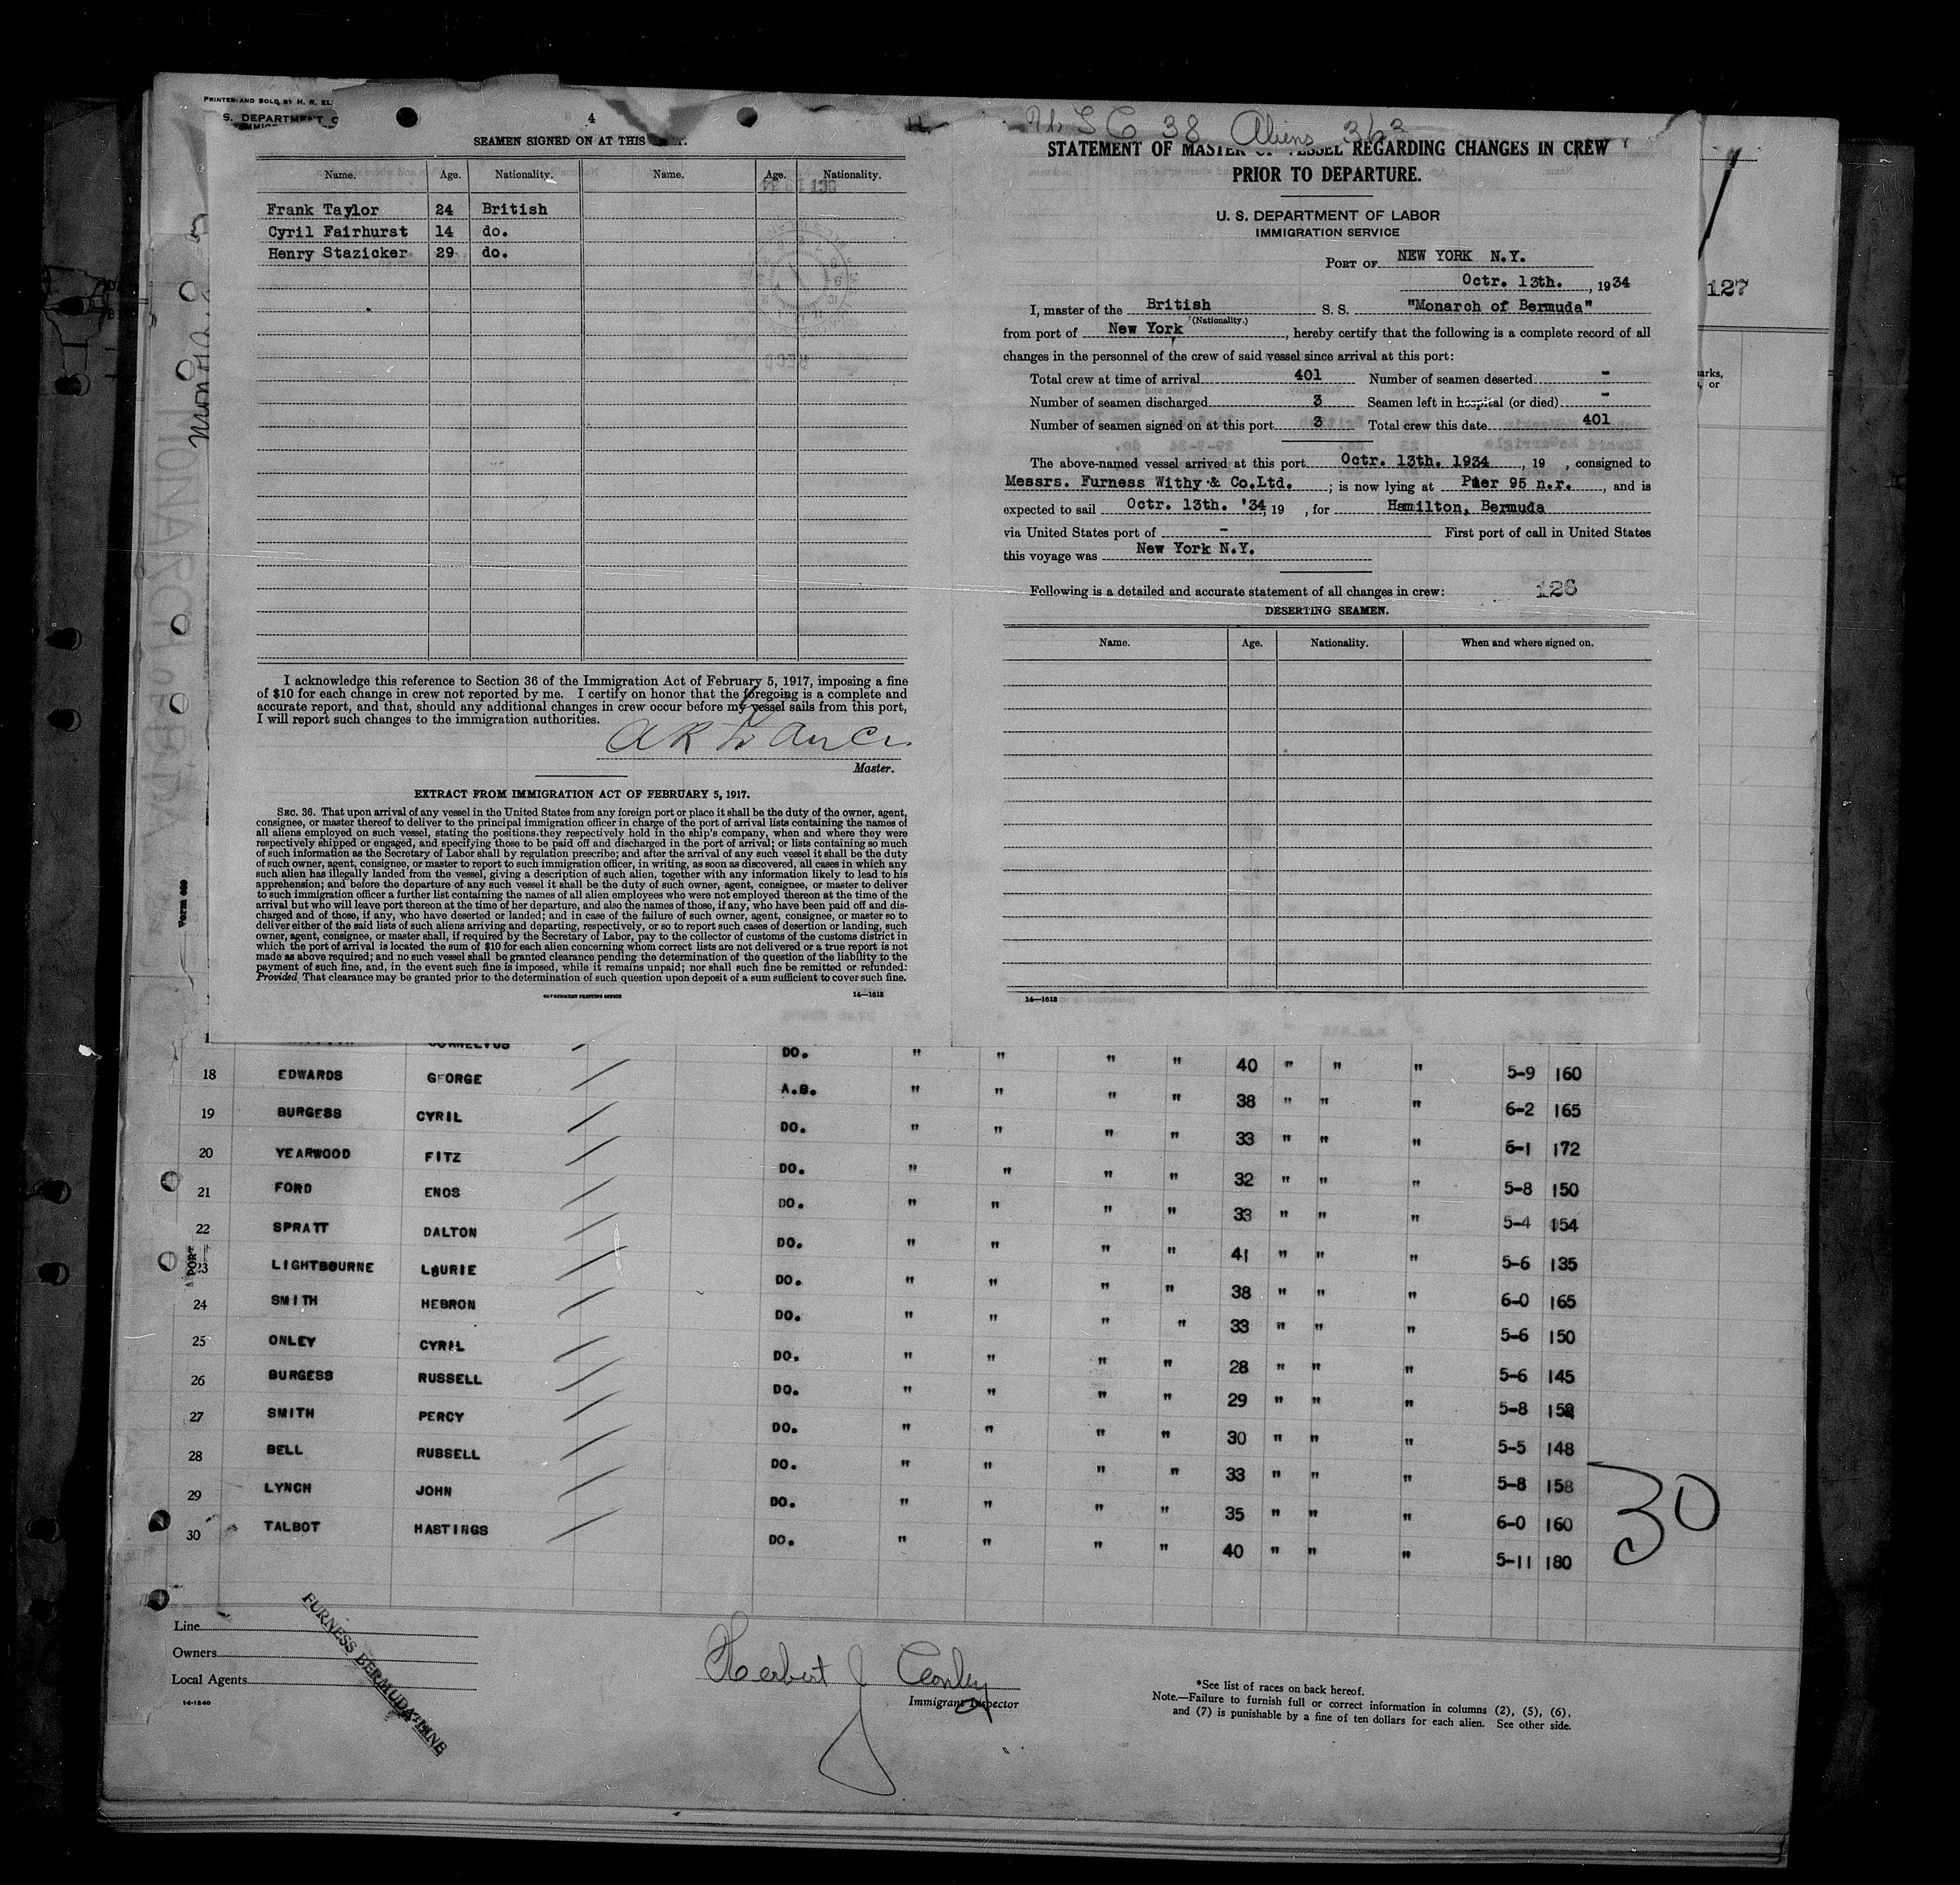 PRINTED AND SOLD BY H. R. EL
S. DEPARTMENT O
4
SEAMEN SIGNED ON AT THIS
Name. Age. Nationality. Name. Age. Nationality.
Frank Taylor 24 British
Cyril Fairhurst 14 do.
Henry Stazicker 29 do.
I acknowledge this reference to Section 36 of the Immigration Act of February 5, 1917, imposing a fine
of $10 for each change in crew not reported by me. I certify on honor that the foregoing is a complete and
accurate report, and that, should any additional changes in crew occur before my vessel sails from this port,
I will report such changes to the immigration authorities.
A R Francis
Master.
EXTRACT FROM IMMIGRATION ACT OF FEBRUARY 5, 1917.
SEC. 36. That upon arrival of any vessel in the United States from any foreign port or place it shall be the duty of the owner, agent,
consignee, or master thereof to deliver to the principal immigration officer in charge of the port of arrival lists containing the names of
all aliens employed on such vessel, stating the positions they respectively hold in the ship's company, when and where they were
respectively shipped or engaged, and specifying those to be paid off and discharged in the port of arrival; or lists containing so much
of such information as the Secretary of Labor shall by regulation prescribe; and after the arrival of any such vessel it shall be the duty
of such owner, agent, consignee, or master to report to such immigration officer, in writing, as soon as discovered, all cases in which any
such alien has illegally landed from the vessel, giving a description of such alien, together with any information likely to lead to his
apprehension; and before the departure of any such vessel it shall be the duty of such owner, agent, consignee, or master to deliver
to such immigration officer a further list containing the names of all alien employees who were not employed thereon at the time of the
arrival but who will leave port thereon at the time of her departure, and also the names of those, if any, who have been paid off and dis-
charged and of those, if any, who have deserted or landed; and in case of the failure of such owner, agent, consignee, or master so to
deliver either of the said lists of such aliens arriving and departing, respectively, or so to report such cases of desertion or landing, such
owner, agent, consignee, or master shall, if required by the Secretary of Labor, pay to the collector of customs of the customs district in
which the port of arrival is located the sum of $10 for each alien concerning whom correct lists are not delivered or a true report is not
made as above required; and no such vessel shall be granted clearance pending the determination of the question of the liability to the
payment of such fine, and, in the event such fine is imposed, while it remains unpaid; nor shall such fine be remitted or refunded:
Provided, That clearance may be granted prior to the determination of such question upon deposit of a sum sufficient to cover such fine.
GOVERNMENT PRINTING OFFICE 14—1613
Form 689
U S C 38 Aliens 363
STATEMENT OF MASTER OF VESSEL REGARDING CHANGES IN CREW
PRIOR TO DEPARTURE.
U. S. DEPARTMENT OF LABOR
IMMIGRATION SERVICE
PORT OF NEW YORK N.Y.
Octr. 13th. , 1934
I, master of the British S. S. "Monarch of Bermuda"
(Nationality.)
from port of New York, hereby certify that the following is a complete record of all
changes in the personnel of the crew of said vessel since arrival at this port:
Total crew at time of arrival 401 Number of seamen deserted -
Number of seamen discharged 3 Seamen left in hospital (or died) -
Number of seamen signed on at this port 3 Total crew this date 401
The above-named vessel arrived at this port Octr. 13th. 1934 , 19 , consigned to
Messrs. Furness Withy & Co.Ltd. ; is now lying at Pier 95 n.r. , and is
expected to sail Octr. 13th. '34, 19 , for Hamilton, Bermuda
via United States port of - First port of call in United States
this voyage was New York N.Y.
Following is a detailed and accurate statement of all changes in crew: 126
DESERTING SEAMEN.
Name. Age. Nationality. When and where signed on.
14—1613
127
arks,
, or
CORNELYUS DO. " " " " 40 " " " 5-9 160
18 EDWARDS GEORGE A.B. " " " " 38 " " " 6-2 165
19 BURGESS CYRIL DO. " " " " 33 " " " 6-1 172
20 YEARWOOD FITZ DO. " " " " 32 " " " 5-8 150
21 FORD ENOS DO. " " " " 33 " " " 5-4 154
22 SPRATT DALTON DO. " " " " 41 " " " 5-6 135
23 LIGHTBOURNE LOURIE DO. " " " " 38 " " " 6-0 165
24 SMITH HEBRON DO. " " " " 33 " " " 5-6 150
25 ONLEY CYRIL DO. " " " " 28 " " " 5-6 145
26 BURGESS RUSSELL DO. " " " " 29 " " " 5-8 152
27 SMITH PERCY DO. " " " " 30 " " " 5-5 148
28 BELL RUSSELL DO. " " " " 33 " " " 5-8 158
29 LYNCH JOHN DO. " " " " 35 " " " 6-0 160
30 TALBOT HASTINGS DO. " " " " 40 " " " 5-11 180
30
PORT
Line
Owners
Local Agents
14-1240
FURNESS BERMUDA LINE
Herbert J Conley
Immigrant Inspector
*See list of races on back hereof.
Note.—Failure to furnish full or correct information in columns (2), (5), (6),
and (7) is punishable by a fine of ten dollars for each alien. See other side.